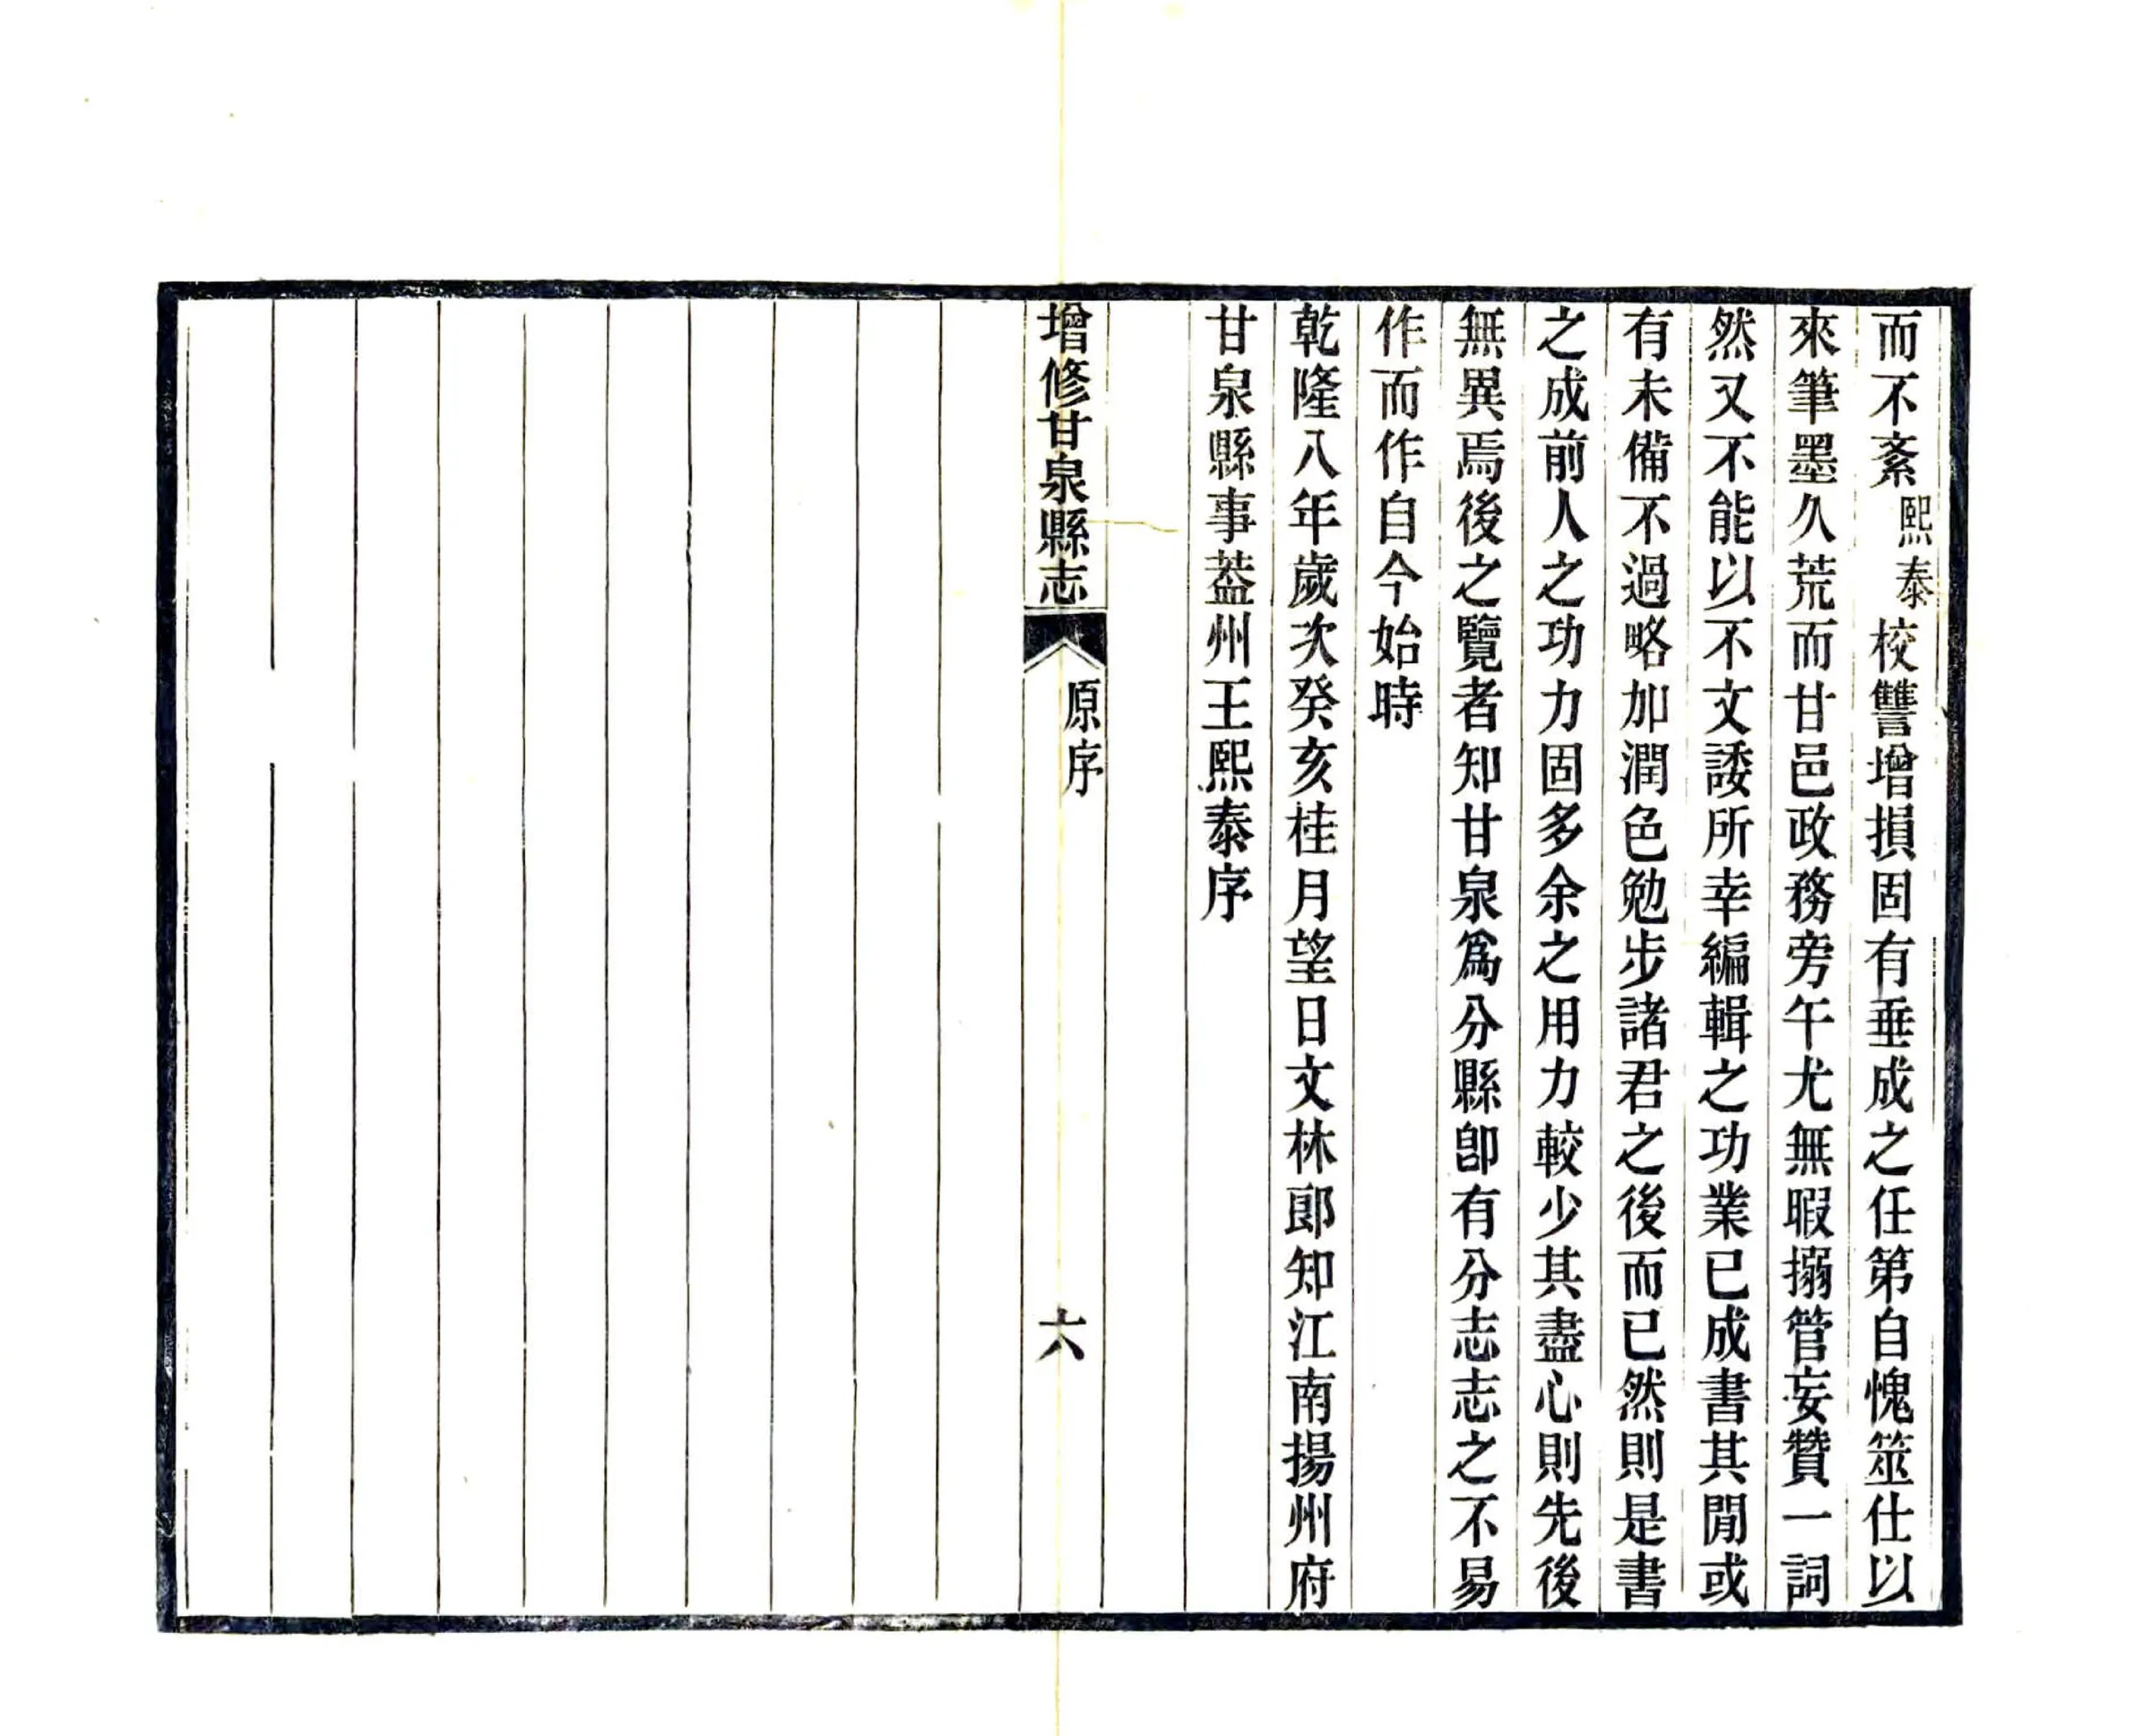 而不紊熙泰校讐增損固有垂成之任第自愧筮仕以
來筆墨久荒而甘邑政務旁午尤無暇搦管妄贊一詞
然又不能以不文諉所幸編輯之功業已成書其閒或
有未備不過略加潤色勉步諸君之後而已然則是書
之成前人之功力固多余之用力較少其盡心則先後
無異焉後之覽者知甘泉爲分縣卽有分志志之不易
作而作自今始時
乾隆八年歲次癸亥桂月望日文林郎知江南揚州府
甘泉縣事葢州王熙泰序
增修甘泉縣志
原序
六